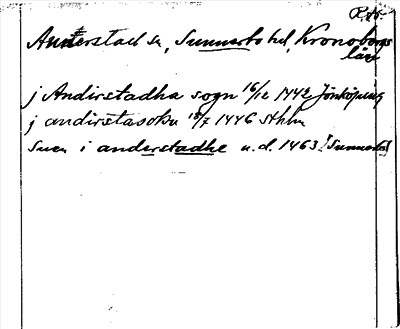 R.A.
Anderstad sn, Sunnerbo hd, Kronobergs
län
j Andirstadha sogn 16/12 1442 Jönköping
j andirstasokn 15/7 1446 Sthlm
Suen i anderstadhe u.d. 1463 [Sunnerbo]